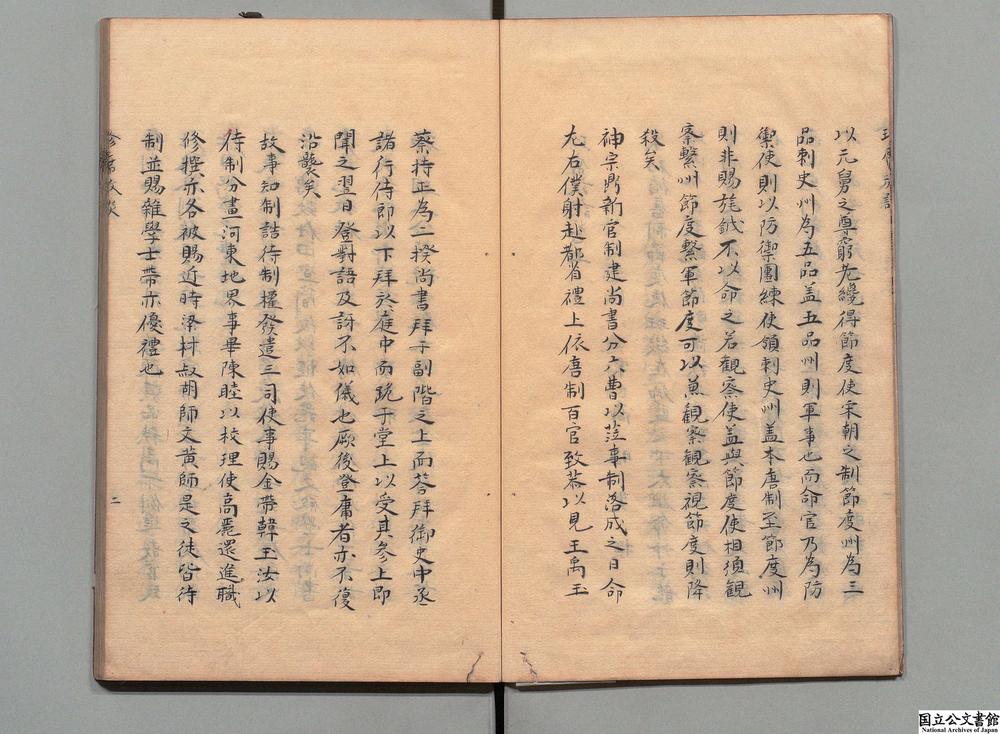 以元舅之尊窮老纔得節度使宋朝之制節度州為三
品刺史州為五品盖五品州則軍事也而命官乃為防
禦使則以防禦團練使領刺史州盖本唐制至節度州
則非賜旄鉞不以命之若觀察使盖與節度使相須觀
察繫州節度繫軍節度可以兼觀察觀察視節度則降
殺矣
神宗鼎新官制建尚書分六曹以蒞事制落成之日命
左右僕射赴都省禮上依唐制百官致恭以見王禹玉
蔡持正為二揆尚書拜于副階之上而荅拜御史中丞
諸行侍郎以下拜於庭中而跪于堂上以受其參上即
聞之翌日登對語及訝不如儀也厥後登庸者亦不復
沿襲矣
故事知制誥待制權發遣三司使事賜金帶韓玉汝以
待制分畫河東地界事畢陳睦以校理使高麗還進職
修撰亦各被賜近時梁材叔胡師文黃師是之徒皆待
制並賜雜學士帶亦優禮也
二
国立公文書館
National Archives of Japan